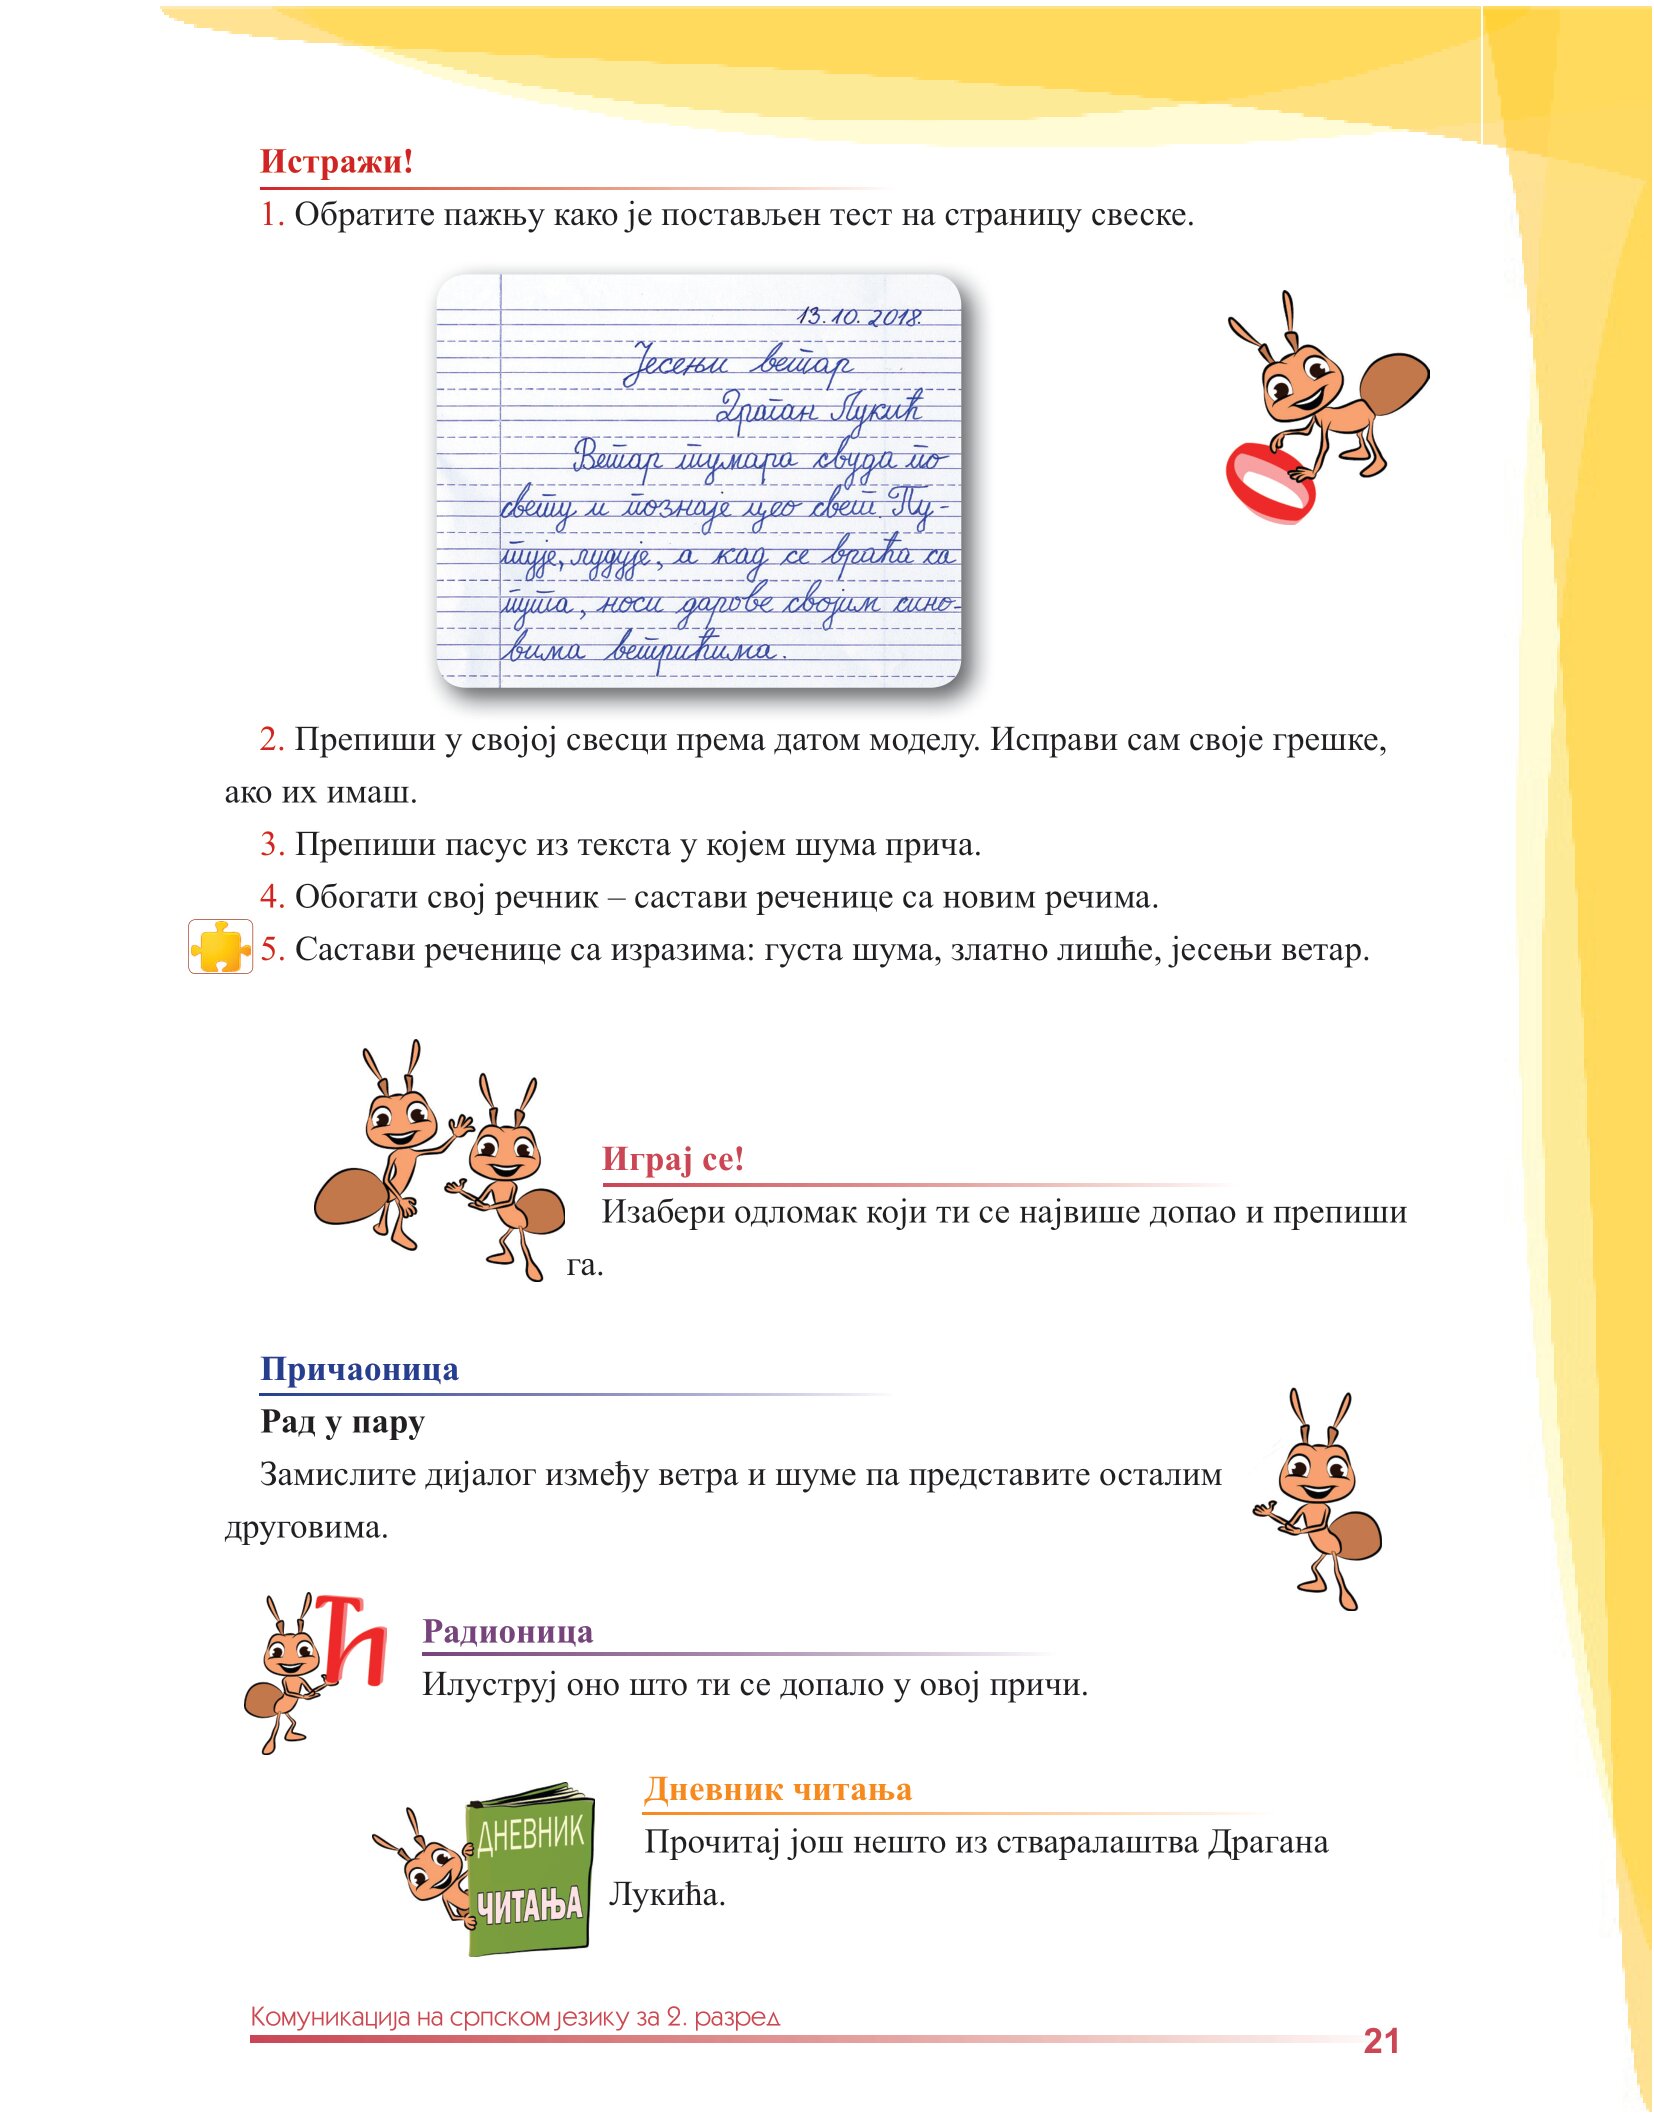 Истражи!
1. Обратите пажњу како је постављен тест на страницу свеске.
13.10.2018.
Јесењи ветар
Драган Лукић
Ветар тумара свуда по
свету и познаје цео свет. Пу-
тује, лудује, а кад се враћа са
пута, носи дарове својим сино-
вима ветрићима.
2. Препиши у својој свесци према датом моделу. Исправи сам своје грешке,
ако их имаш.
3. Препиши пасус из текста у којем шума прича.
4. Обогати свој речник – састави реченице са новим речима.
5. Састави реченице са изразима: густа шума, златно лишће, јесењи ветар.
Играј се!
Изабери одломак који ти се највише допао и препиши
га.
Причаоница
Рад у пару
Замислите дијалог између ветра и шуме па представите осталим
друговима.
Ћ
Радионица
Илуструј оно што ти се допало у овој причи.
Дневник читања
ДНЕВНИК
ЧИТАЊА
Прочитај још нешто из стваралаштва Драгана
Лукића.
Комуникација на српском језику за 2. разред
21